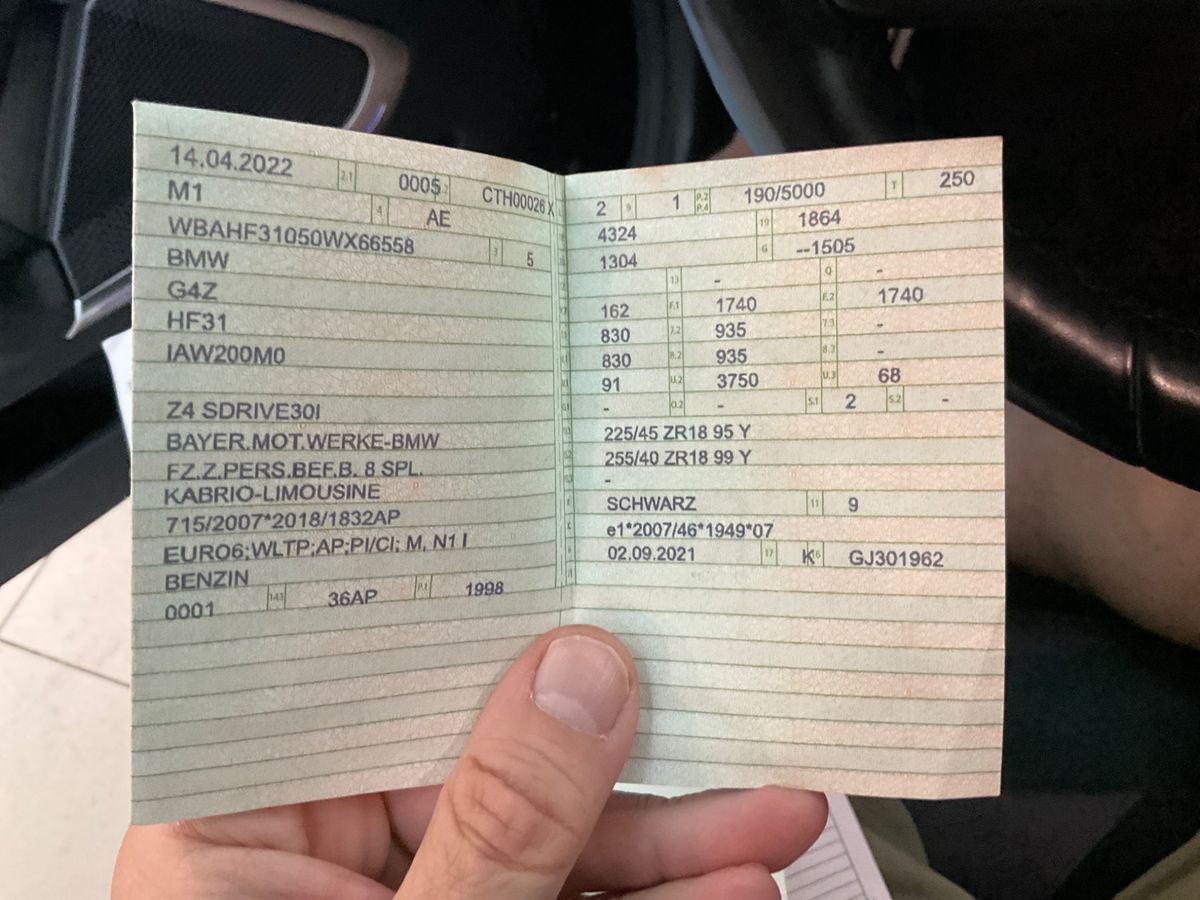 14.04.2022 2.1 0005 2 CTH00026 X
M1 4 AE
WBAHF31050WX66558 3 5
BMW
G4Z
HF31
IAW200M0
Z4 SDRIVE30I
BAYER.MOT.WERKE-BMW
FZ.Z.PERS.BEF.B. 8 SPL.
KABRIO-LIMOUSINE
715/2007*2018/1832AP
EURO6;WLTP;AP;PI/CI; M, N1 I
BENZIN
0001 14.1 36AP P.1 1998
2 9 1 P.2 P.4 190/5000 T 250
4324 19 1864
1304 G --1505
13 - Q -
162 F.1 1740 F.2 1740
830 7.2 935 7.3 -
830 8.2 935 8.3 -
91 U.2 3750 U.3 68
- O.2 - S.1 2 S.2 -
225/45 ZR18 95 Y
255/40 ZR18 99 Y
-
SCHWARZ 11 9
e1*2007/46*1949*07
02.09.2021 17 K 16 GJ301962